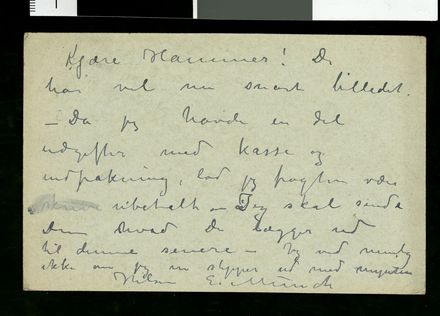 Kjære Hammer! De
har vel nu snart billedet.
– Da jeg havde en del
udgifter med kasse og
indpakning, lod jeg fragten være
ubetalt – Jeg skal sende
Dem hvad De lægger ud
til denne senere – Jeg ved nemlig
ikke om jeg nu slipper ud med
Hilsen E. Munch